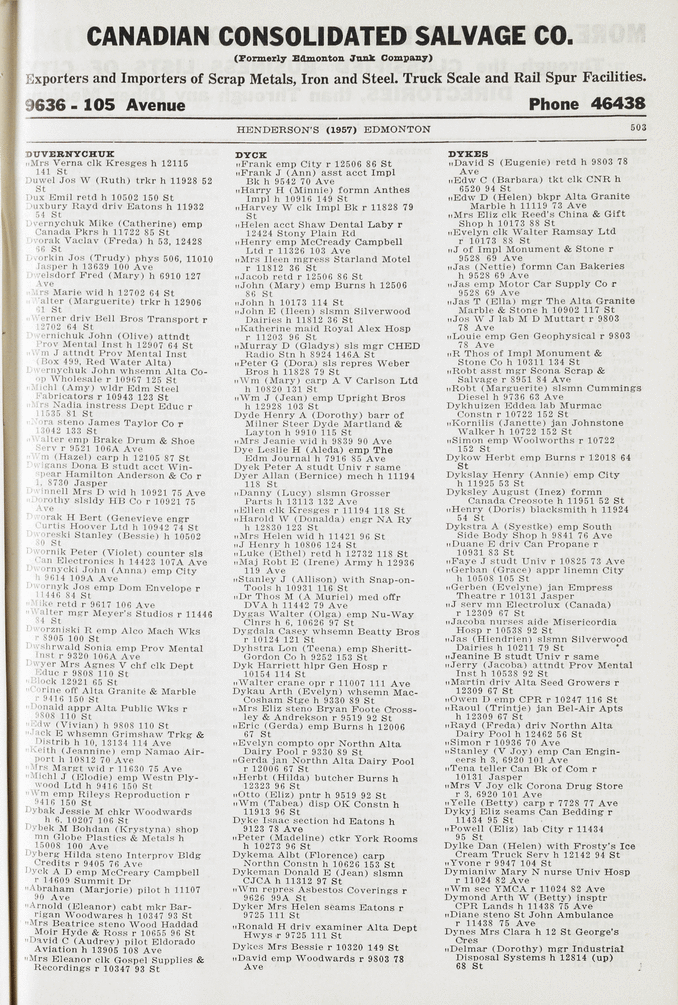 CANADIAN CONSOLIDATED SALVAGE CO.
(Formerly Edmonton Junk Company)
Exporters and Importers of Scrap Metals, Iron and Steel. Truck Scale and Rail Spur Facilities.
9636 - 105 Avenue Phone 46438
HENDERSON'S (1957) EDMONTON 503
DUVERNYCHUK
"Mrs Verna clk Kresges h 12115
141 St
Duwel Jos W (Ruth) trkr h 11928 52
St
Dux Emil retd h 10502 150 St
Duxbury Rayd driv Eatons h 11932
54 St
Dvernychuk Mike (Catherine) emp
Canada Pkrs h 11722 85 St
Dvorak Vaclav (Freda) h 53, 12428
66 St
Dvorkin Jos (Trudy) phys 506, 11010
Jasper h 13639 100 Ave
Dwelsdorf Fred (Mary) h 6910 127
Ave
"Mrs Marie wid h 12702 64 St
"Walter (Marguerite) trkr h 12906
61 St
"Werner driv Bell Bros Transport r
12702 64 St
Dwernichuk John (Olive) attndt
Prov Mental Inst h 12907 64 St
"Wm J attndt Prov Mental Inst
(Box 499, Red Water Alta)
Dwernychuk John whsemn Alta Co-
op Wholesale r 10967 125 St
"Michl (Amy) wldr Edm Steel
Fabricators r 10943 123 St
"Mrs Nadia instress Dept Educ r
11535 81 St
"Nora steno James Taylor Co r
13042 133 St
"Walter emp Brake Drum & Shoe
Serv r 9521 106A Ave
"Wm (Hazel) carp h 12105 87 St
Dwigans Dona B studt acct Win-
spear Hamilton Anderson & Co r
1, 8730 Jasper
Dwinnell Mrs D wid h 10921 75 Ave
"Dorothy slsldy HB Co r 10921 75
Ave
Dworak H Bert (Genevieve engr
Curtis Hoover Ltd h 10942 74 St
Dworeski Stanley (Bessie) h 10502
80 St
Dwornik Peter (Violet) counter sls
Can Electronics h 14423 107A Ave
Dwornycki John (Anna) emp City
h 9614 109A Ave
Dwornyk Jos emp Dom Envelope r
11446 84 St
"Mike retd r 9617 106 Ave
"Walter mgr Meyer's Studios r 11446
84 St
Dworzniski R emp Alco Mach Wks
r 8905 100 St
Dwshrwald Sonia emp Prov Mental
Inst r 9320 106A Ave
Dwyer Mrs Agnes V chf clk Dept
Educ r 9808 110 St
"Block 12921 65 St
"Corine off Alta Granite & Marble
r 9416 150 St
"Donald appr Alta Public Wks r
9808 110 St
"Edw (Vivian) h 9808 110 St
"Jack E whsemn Grimshaw Trkg &
Distrib h 10, 13134 114 Ave
"Keith (Jeannine) emp Namao Air-
port h 10812 70 Ave
"Mrs Margt wid r 11630 75 Ave
"Michl J (Elodie) emp Westn Ply-
wood Ltd h 9416 150 St
"Wm emp Rileys Reproduction r
9416 150 St
Dybak Jessie M chkr Woodwards
h 6, 10207 106 St
Dybek M Bohdan (Krystyna) shop
mn Globe Plastics & Metals h
15008 100 Ave
Dyberg Hilda steno Interprov Bldg
Credits r 9405 76 Ave
Dyck A D emp McCreary Campbell
r 14609 Summit Dr
"Abraham (Marjorie) pilot h 11107
90 Ave
"Arnold (Eleanor) cabt mkr Bar-
rigan Woodwares h 10347 93 St
"Mrs Beatrice steno Wood Haddad
Moir Hyde & Ross r 10655 96 St
"David C (Audrey) pilot Eldorado
Aviation h 13905 108 Ave
"Mrs Eleanor clk Gospel Supplies &
Recordings r 10347 93 St
DYCK
"Frank emp City r 12506 86 St
"Frank J (Ann) asst acct Impl
Bk h 9542 70 Ave
"Harry H (Minnie) formn Anthes
Impl h 10916 149 St
"Harvey W clk Impl Bk r 11828 79
St
"Helen acct Shaw Dental Laby r
12424 Stony Plain Rd
"Henry emp McCready Campbell
Ltd r 11326 103 Ave
"Mrs Ileen mgress Starland Motel
r 11812 36 St
"Jacob retd r 12506 86 St
"John (Mary) emp Burns h 12506
86 St
"John h 10173 114 St
"John E (Ileen) slsmn Silverwood
Dairies h 11812 36 St
"Katherine maid Royal Alex Hosp
r 11203 96 St
"Murray D (Gladys) sls mgr CHED
Radio Stn h 8924 146A St
"Peter G (Dora) sls repres Weber
Bros h 11828 79 St
"Wm (Mary) carp A V Carlson Ltd
h 10820 131 St
"Wm J (Jean) emp Upright Bros
h 12928 103 St
Dyde Henry A (Dorothy) barr of
Milner Steer Dyde Martland &
Layton h 9910 115 St
"Mrs Jeanie wid h 9839 90 Ave
Dye Leslie H (Aleda) emp The
Edm Journal h 7916 85 Ave
Dyek Peter A studt Univ r same
Dyer Allan (Bernice) mech h 11194
118 St
"Danny (Lucy) slsmn Grosser
Parts h 13113 132 Ave
"Ellen clk Kresges r 11194 118 St
"Harold W (Donalda) engr NA Ry
h 12830 123 St
"Mrs Helen wid h 11421 96 St
"J Henry h 10806 124 St
"Luke (Ethel) retd h 12732 118 St
"Maj Robt E (Irene) Army h 12936
119 Ave
"Stanley J (Allison) with Snap-on-
Tools h 10931 116 St
"Dr Thos M (A Muriel) med offr
DVA h 11442 79 Ave
Dygas Walter (Olga) emp Nu-Way
Clnrs h 6, 10626 97 St
Dygdala Casey whsemn Beatty Bros
r 10124 121 St
Dyhstra Lon (Teena) emp Sheritt-
Gordon Co h 9252 153 St
Dyk Harriett hlpr Gen Hosp r
10154 114 St
"Walter crane opr r 11007 111 Ave
Dykau Arth (Evelyn) whsemn Mac-
Cosham Stge h 9330 89 St
"Mrs Eliz steno Bryan Foote Cross-
ley & Andrekson r 9519 92 St
"Eric (Gerda) emp Burns h 12006
67 St
"Evelyn compto opr Northn Alta
Dairy Pool r 9330 89 St
"Gerda jan Northn Alta Dairy Pool
r 12006 67 St
"Herbt (Hilda) butcher Burns h
12323 96 St
"Otto (Eliz) pntr h 9519 92 St
"Wm (Tabea) disp OK Constn h
11913 96 St
Dyke Isaac section hd Eatons h
9123 78 Ave
"Peter (Madeline) ctkr York Rooms
h 10273 96 St
Dykema Albt (Florence) carp
Northn Constn h 10626 153 St
Dykeman Donald E (Jean) slsmn
CJCA h 11312 97 St
"Wm repres Asbestos Coverings r
9626 99A St
Dyker Mrs Helen seams Eatons r
9725 111 St
"Ronald H driv examiner Alta Dept
Hwys r 9725 111 St
Dykes Mrs Bessie r 10320 149 St
"David emp Woodwards r 9803 78
Ave
DYKES
"David S (Eugenie) retd h 9803 78
Ave
"Edw C (Barbara) tkt clk CNR h
6520 94 St
"Edw D (Helen) bkpr Alta Granite
Marble h 11119 73 Ave
"Mrs Eliz clk Reed's China & Gift
Shop h 10173 88 St
"Evelyn clk Walter Ramsay Ltd
r 10173 88 St
"J of Impl Monument & Stone r
9528 69 Ave
"Jas (Nettie) formn Can Bakeries
h 9528 69 Ave
"Jas emp Motor Car Supply Co r
9528 69 Ave
"Jas T (Ella) mgr The Alta Granite
Marble & Stone h 10902 117 St
"Jos W J lab M D Muttart r 9803
78 Ave
"Louie emp Gen Geophysical r 9803
78 Ave
"R Thos of Impl Monument &
Stone Co h 10311 134 St
"Robt asst mgr Scona Scrap &
Salvage r 8951 84 Ave
"Robt (Marguerite) slsmn Cummings
Diesel h 9736 63 Ave
Dykhuizen Eddea lab Murmac
Constn r 10722 152 St
"Kornilis (Janette) jan Johnstone
Walker h 10722 152 St
"Simon emp Woolworths r 10722
152 St
Dykow Herbt emp Burns r 12018 64
St
Dykslay Henry (Annie) emp City
h 11925 53 St
Dyksley August (Inez) formn
Canada Creosote h 11951 52 St
"Henry (Doris) blacksmith h 11924
54 St
Dykstra A (Syestke) emp South
Side Body Shop h 9841 76 Ave
"Duane E driv Can Propane r
10931 83 St
"Faye J studt Univ r 10825 73 Ave
"Gerban (Grace) appr linemn City
h 10508 105 St
"Gerben (Evelyne) jan Empress
Theatre r 10131 Jasper
"J serv mn Electrolux (Canada)
r 12309 67 St
"Jacoba nurses aide Misericordia
Hosp r 10538 92 St
"Jas (Hiendrien) slsmn Silverwood
Dairies h 10211 79 St
"Jeanine B studt Univ r same
"Jerry (Jacoba) attndt Prov Mental
Inst h 10538 92 St
"Martin driv Alta Seed Growers r
12309 67 St
"Owen D emp CPR r 10247 116 St
"Raoul (Trintje) jan Bel-Air Apts
h 12309 67 St
"Rayd (Freda) driv Northn Alta
Dairy Pool h 12462 56 St
"Simon r 10936 70 Ave
"Stanley (V Joy) emp Can Engin-
eers h 3, 6920 101 Ave
"Tena teller Can Bk of Com r
10131 Jasper
"Mrs V Joy clk Corona Drug Store
r 3, 6920 101 Ave
"Yelle (Betty) carp r 7728 77 Ave
Dykyj Eliz seams Can Bedding r
11434 95 St
"Powell (Eliz) lab City r 11434
95 St
Dylke Dan (Helen) with Frosty's Ice
Cream Truck Serv h 12142 94 St
"Yvone r 9947 104 St
Dymianiw Mary N nurse Univ Hosp
r 11024 82 Ave
"Wm sec YMCA r 11024 82 Ave
Dymond Arth W (Betty) insptr
CPR Lands h 11438 75 Ave
"Diane steno St John Ambulance
r 11438 75 Ave
Dynes Mrs Clara h 12 St George's
Cres
"Delmar (Dorothy) mgr Industrial
Disposal Systems h 12814 (up)
68 St